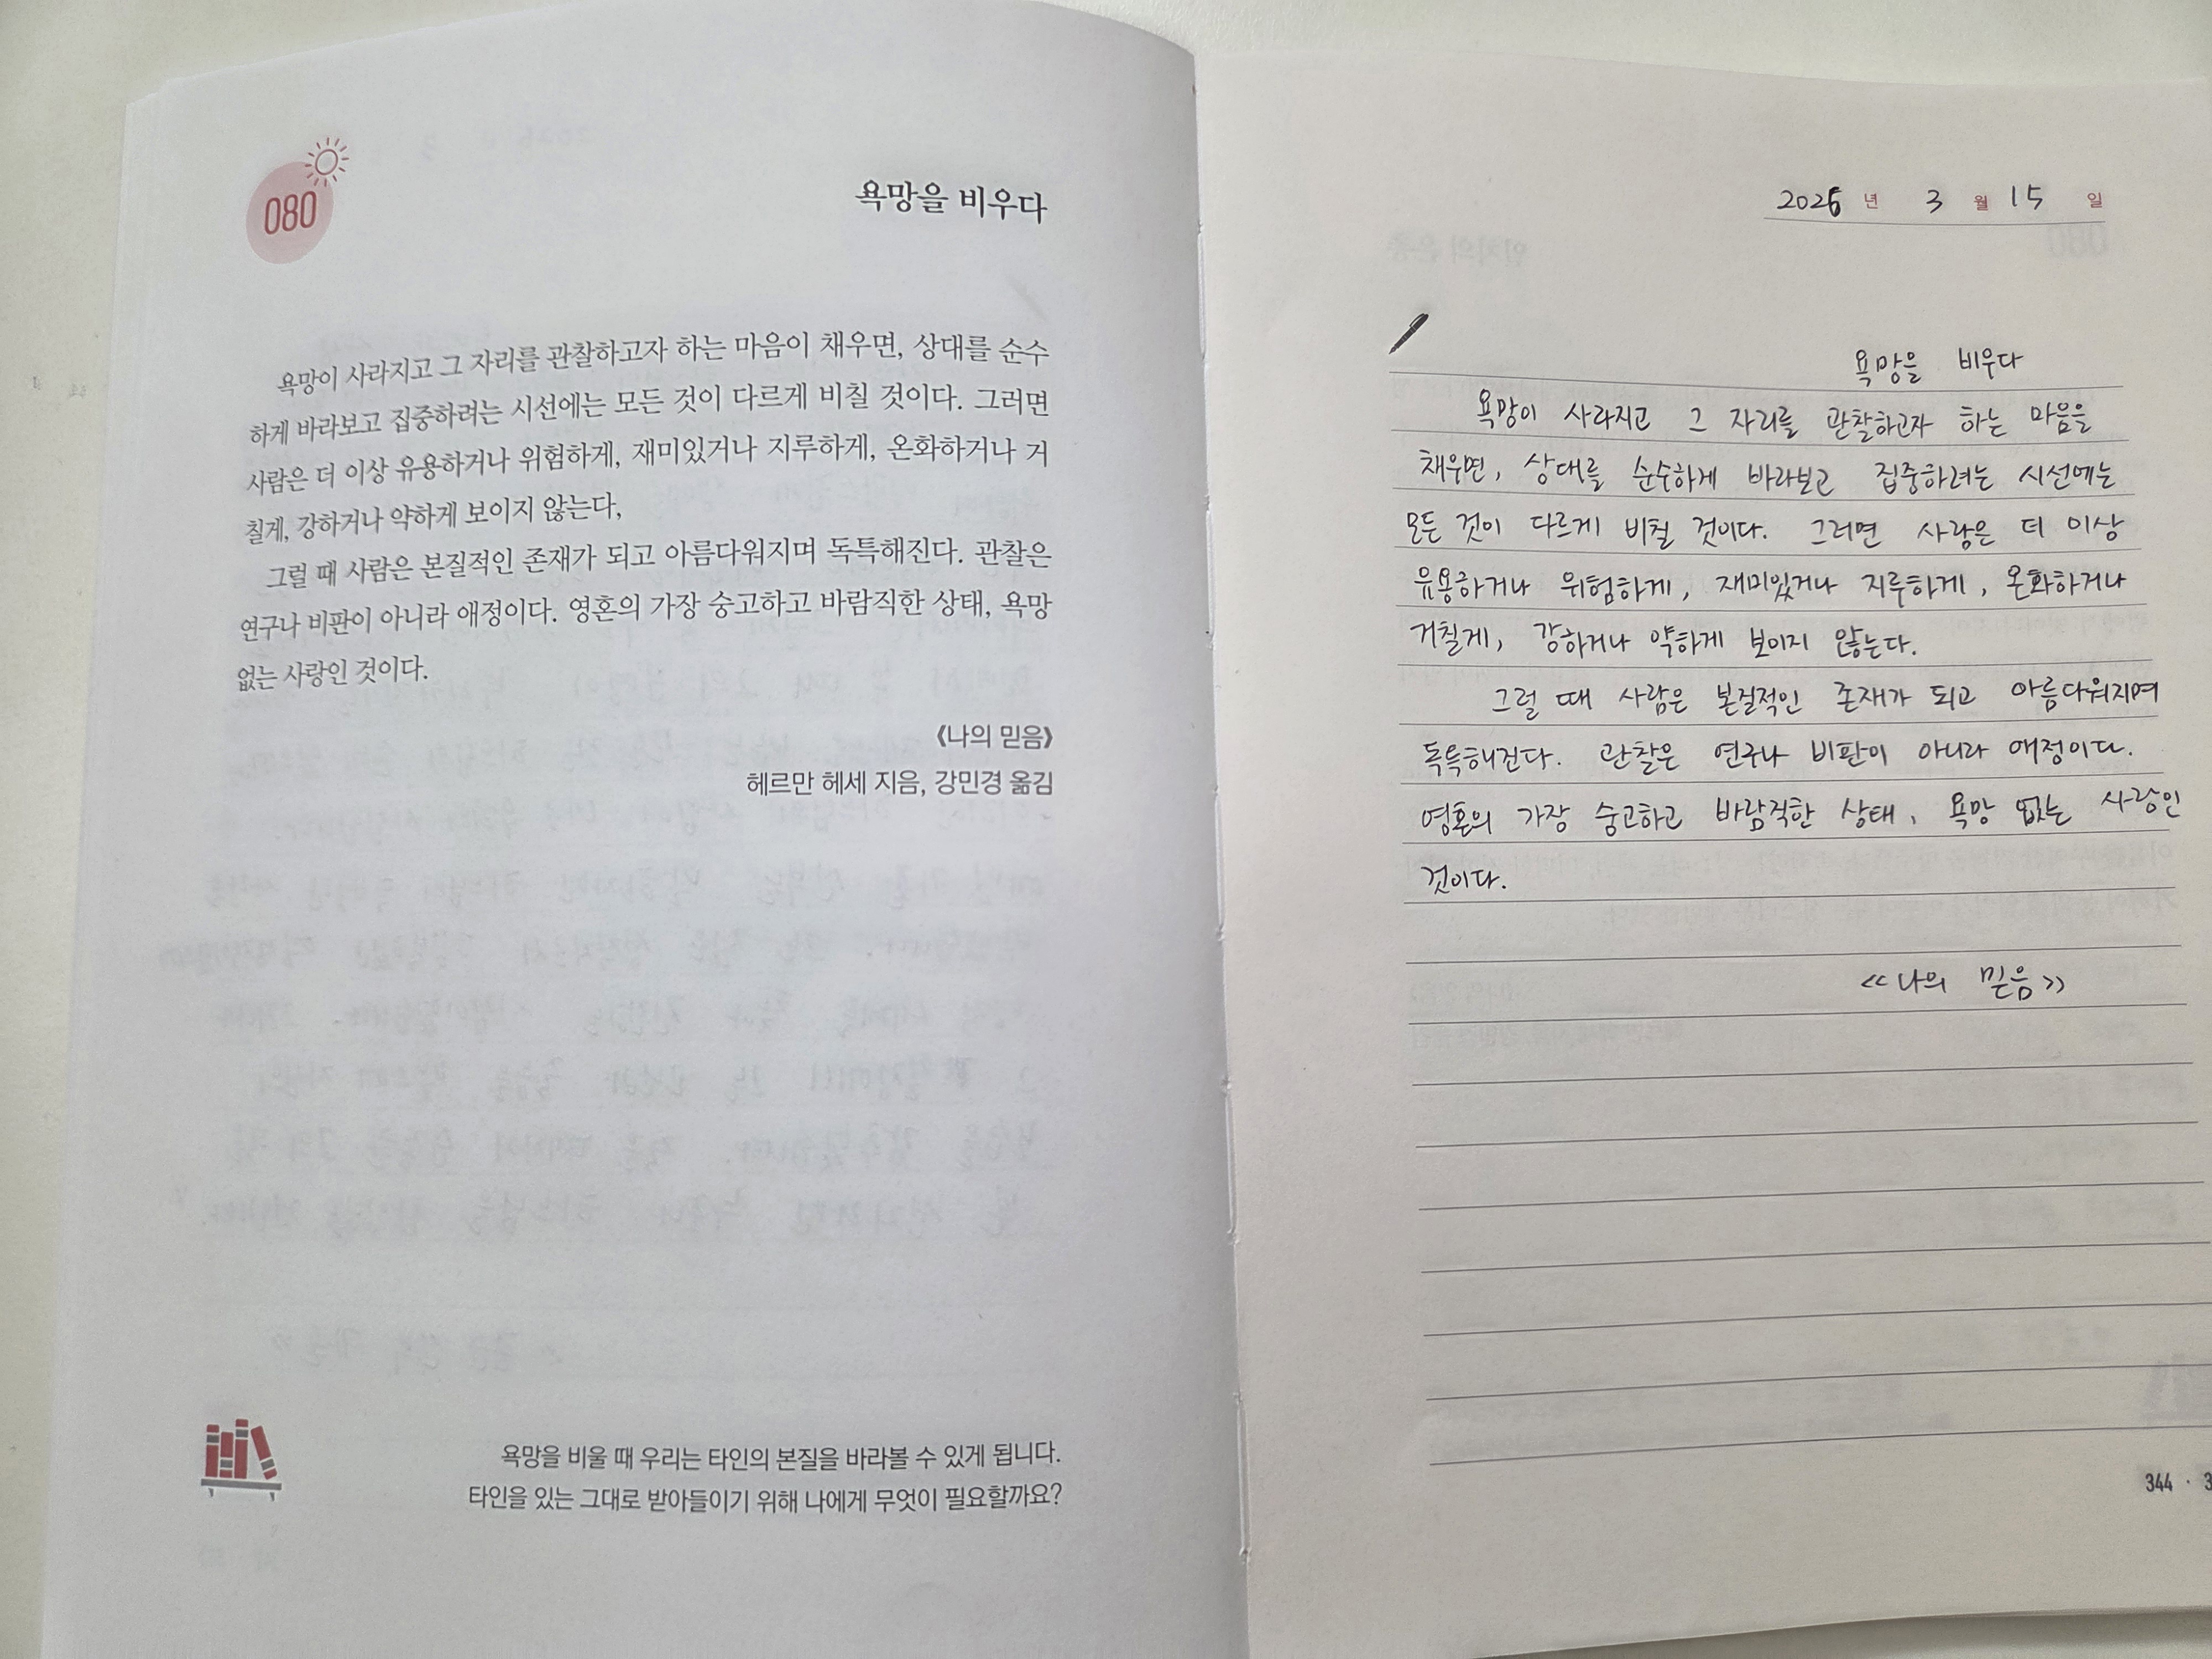 080
욕망을 비우다
욕망이 사라지고 그 자리를 관찰하고자 하는 마음이 채우면, 상대를 순수
하게 바라보고 집중하려는 시선에는 모든 것이 다르게 비칠 것이다. 그러면
사람은 더 이상 유용하거나 위험하게, 재미있거나 지루하게, 온화하거나 거
칠게, 강하거나 약하게 보이지 않는다,
그럴 때 사람은 본질적인 존재가 되고 아름다워지며 독특해진다. 관찰은
연구나 비판이 아니라 애정이다. 영혼의 가장 숭고하고 바람직한 상태, 욕망
없는 사랑인 것이다.
《나의 믿음》
헤르만 헤세 지음, 강민경 옮김
욕망을 비울 때 우리는 타인의 본질을 바라볼 수 있게 됩니다.
타인을 있는 그대로 받아들이기 위해 나에게 무엇이 필요할까요?
2026 년 3 월 15 일
욕망을 비우다
욕망이 사라지고 그 자리를 관찰하고자 하는 마음을
채우면, 상대를 순수하게 바라보고 집중하려는 시선에는
모든 것이 다르게 비칠 것이다. 그러면 사랑은 더 이상
유용하거나 위험하게, 재미있거나 지루하게, 온화하거나
거칠게, 강하거나 약하게 보이지 않는다.
그럴 때 사람은 본질적인 존재가 되고 아름다워지며
독특해진다. 관찰은 연구나 비판이 아니라 애정이다.
영혼의 가장 숭고하고 바람직한 상태, 욕망 없는 사랑인
것이다.
<<나의 믿음>>
344 · 3